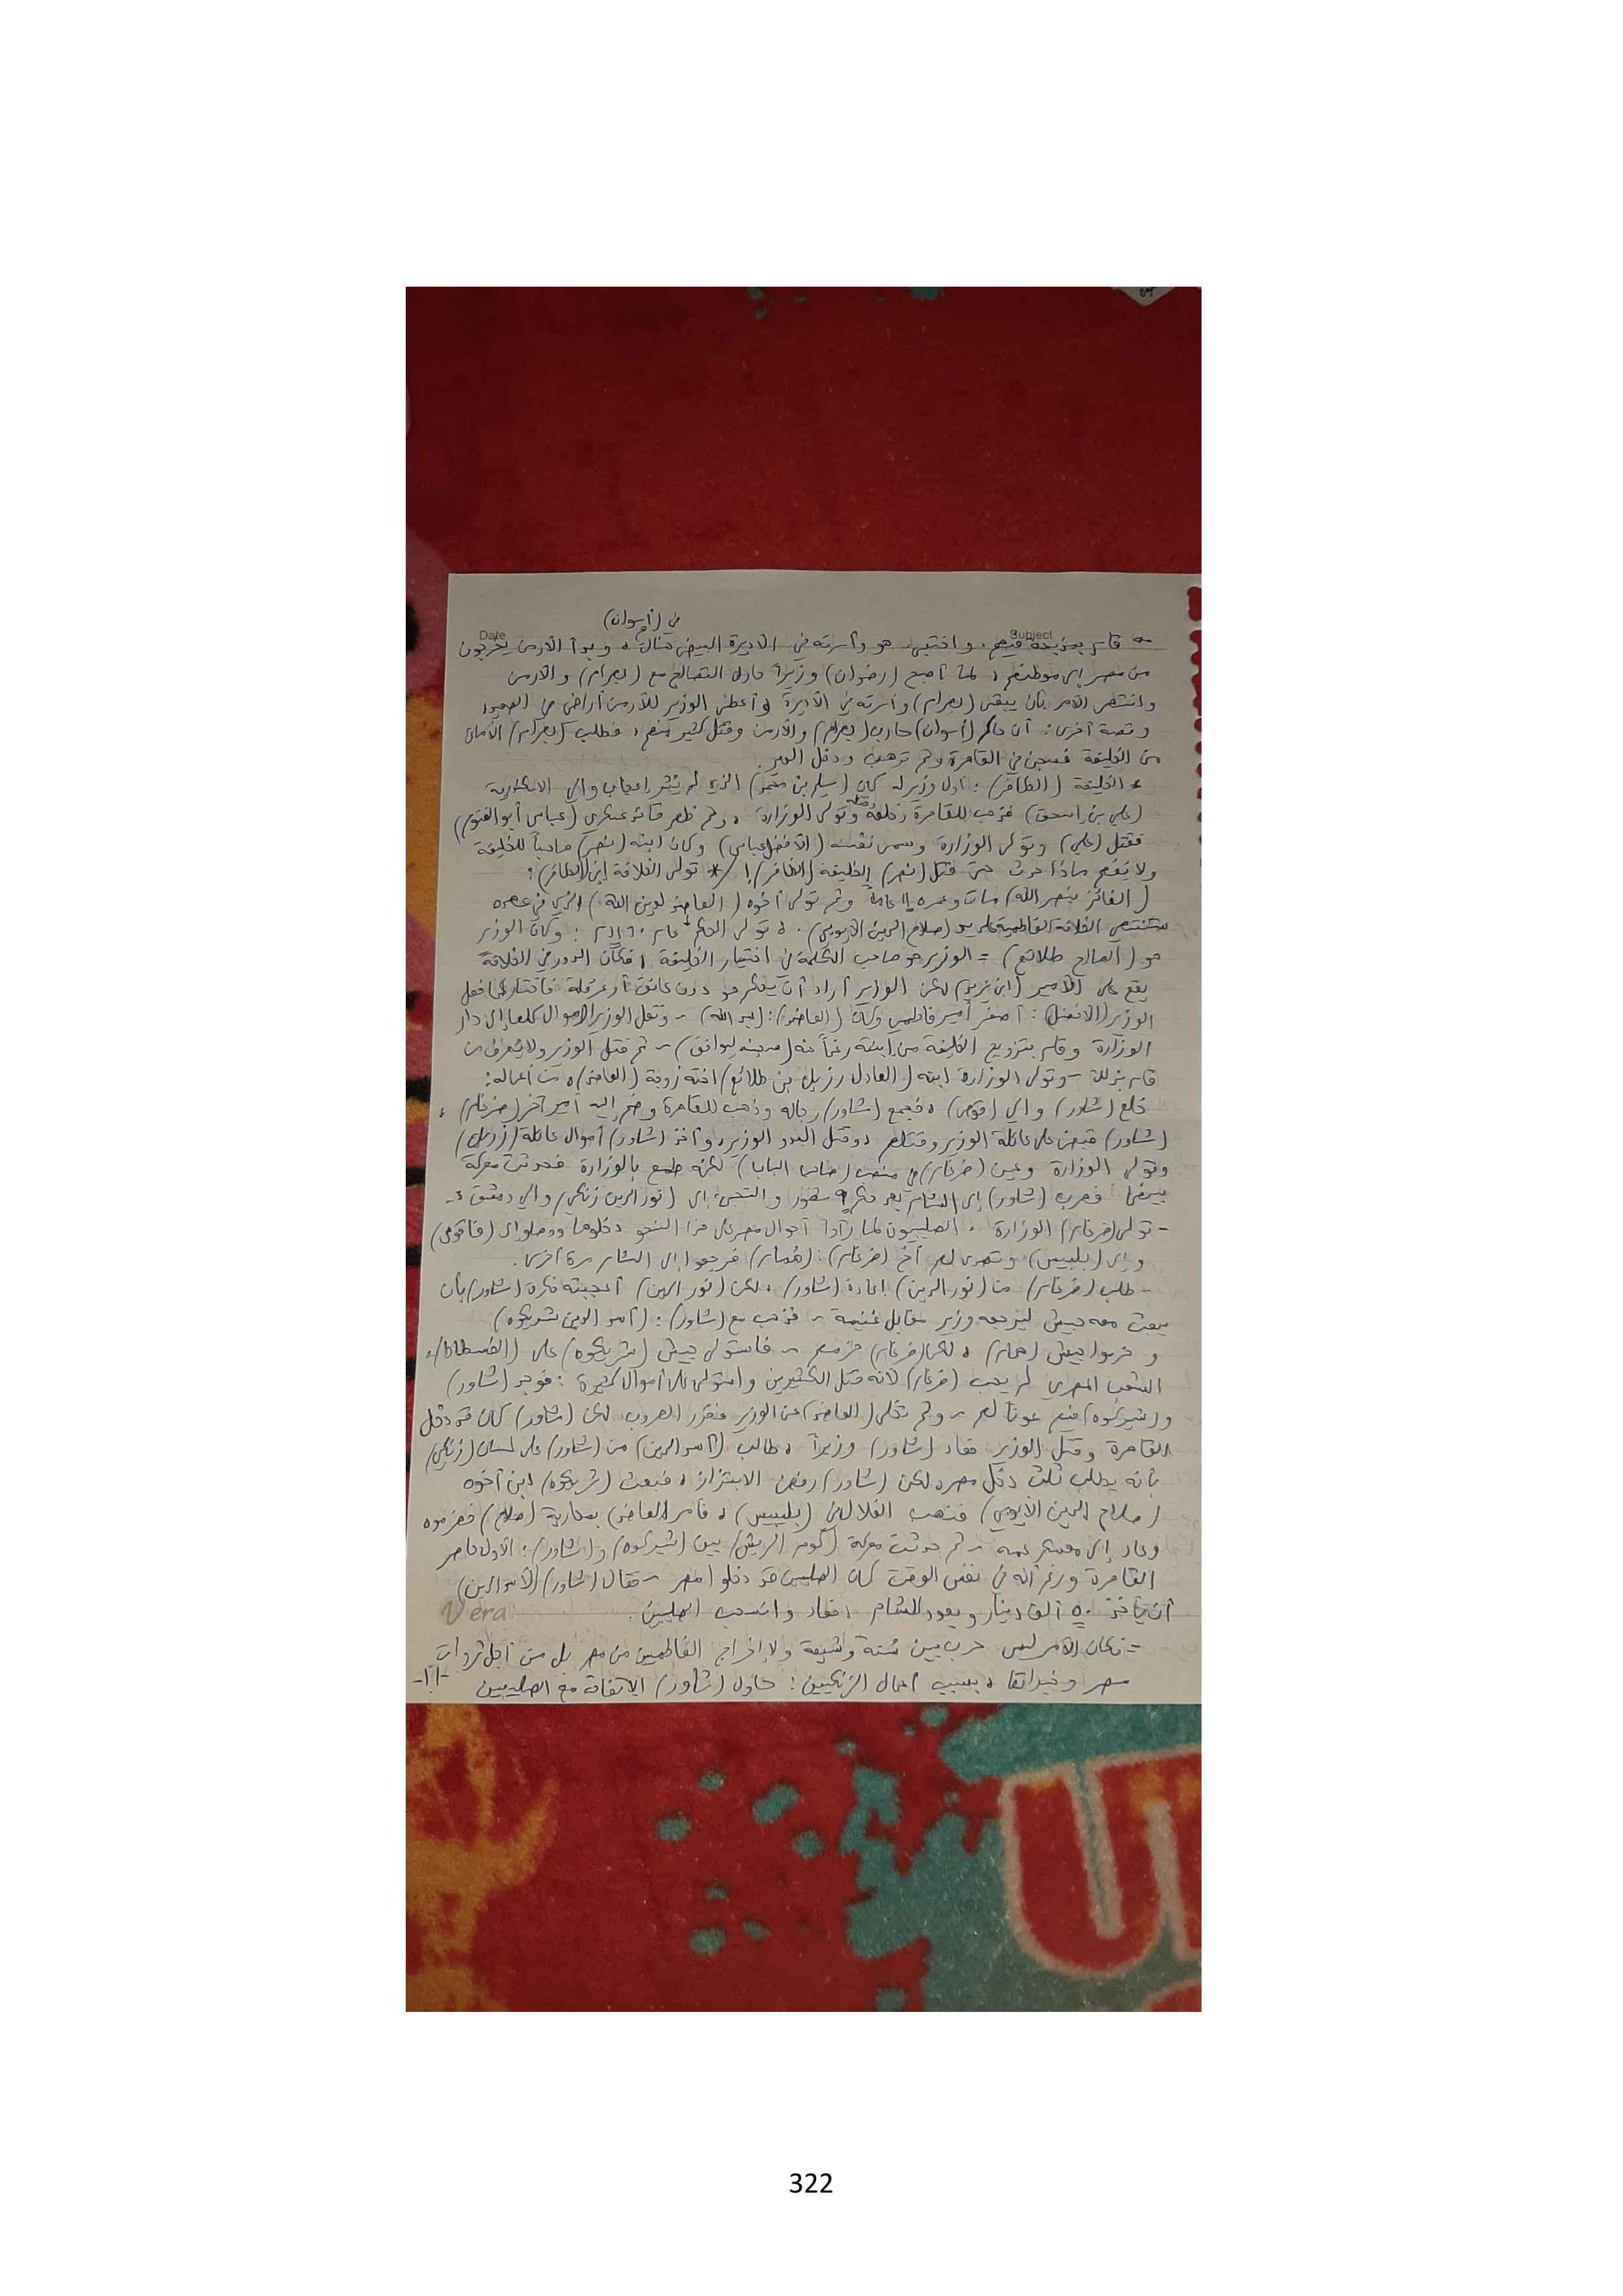 في (أسوان)
Date
Subject
قام بمذبحة فيهم، واختبى هو وأسرته في الأديرة البيض هناك، وبدأ الأرمن يخرجون
من مصر إلى موطنهم، لما أصبح (رضوان) وزيراً حاول التصالح مع (بهرام) والأرمن
وانتهى الأمر بأن يبقى (بهرام) وأسرته في الأديرة وأعطى الوزير للأرمن أراضي في الصعيد
وقصة أخرى: أن حاكم (أسوان) حارب (بهرام) والأرمن وقتل كثير منهم، فطلب (بهرام) الأمان
من الخليفة فسجن في القاهرة وثم ترهب ودخل الدير.
* الخليفة (الظافر): أول وزير له كان (سليم بن) الذي لم يثر إعجاب والي الاسكندرية
(علي بن اسحق) فذهب للقاهرة وخلعه وتولى الوزارة، وثم ظهر قائد عسكري (عباس أبو الفتوح)
فقتل (علي) وتولى الوزارة وسمى نفسه (الأفضل عباس) وكان ابنه (نصر) صاحباً للخليفة
ولا نفهم ماذا حدث حتى قتل (نصر) الخليفة (الظافر)! * تولى الخلافة ابن (الظافر):
(الفائز بنصر الله) مات وعمره 11 عاماً وثم تولى أخوه (العاضد لدين الله) الذي في عصره
ستنتهي الخلافة الفاطمية على يد (صلاح الدين الأيوبي). تولى الحكم عام 1160م: وكان الوزير
هو (الصالح طلائع) = الوزير هو صاحب الكلمة في اختيار الخليفة، فكان الدور في الخلافة
يقع على الأمير لكن الوزير أراد أن يحكم هو دون عائق أو عرقلة فاختار كما فعل
الوزير (الأفضل): أصغر أمير فاطمي وكان (العاضد): (عبد الله) ~ ونقل الوزير الأموال كلها إلى دار
الوزارة وقام بتزويج الخليفة من ابنته رغماً عنه ~ ثم قتل الوزير ولا يعرف من
قام بذلك - وتولى الوزارة ابنه (العادل رزيك بن طلائع) أخته زوجة (العاضد)، من أعماله:
خلع (شاور) والي (قوص)، فجمع (شاور) رجاله وذهب للقاهرة وضم إليه أمير آخر (ضرغام)،
(شاور) قبض على عائلة الوزير وقتلهم، وقتل البدو الوزير، وأخذ (شاور) أموال عائلة (رزيك)
وتولى الوزارة وعين (ضرغام) في منصب (صاحب الباب) لكنه طمع بالوزارة فحدثت معركة
بينهما فهرب (شاور) إلى الشام بعد حكم 9 شهور والتجئ إلى (نور الدين زنكي) والي دمشق:
- تولى (ضرغام) الوزارة، الصليبيون لما رأوا أحوال مصر على هذا النحو دخلوها ووصلوا إلى (فاقوس)
وإلى (بلبيس) وتصدى لهم أخ (ضرغام): (همام) فرجعوا إلى الشام مرة أخرى.
- طلب (ضرغام) من (نور الدين) إعادة (شاور)، لكن (نور الدين) أعجبته فكرة (شاور) بأن
يبعث معه جيش ليرجعه وزير مقابل غنيمة ~ فذهب مع (شاور): (أسد الدين شيركوه)
و جيش (همام)، لكن (ضرغام) هزمهم ~ فاستولى جيش (شيركوه) على (الفسطاط)،
الشعب المصري لم يحب (ضرغام) لأنه قتل الكثيرين واستولى على أموال كثيرة: فوجد (شاور)
و(شيركوه) منهم عوناً لهم ~ وثم تخلى (العاضد) عن الوزير فقرر الهروب لكن (شاور) كان قد دخل
القاهرة وقتل الوزير فعاد (شاور) وزيراً، طالب (أسد الدين) من (شاور) على لسان (زنكي)
بأنه يطلب ثلث دخل مصر، لكن (شاور) رفض الابتزاز، فبعث (شيركوه) ابن أخوه
(صلاح الدين الأيوبي) فنهب الغلال في (بلبيس)، قام (العاضد) بمحاربة (صلاح) فهزموه
وعاد إلى معسكر عمه ~ ثم حدثت معركة (كوم الريش) بين (شيركوه) و(شاور): الأول حاصر
القاهرة ورغم أنه في نفس الوقت كان الصليبيين قد دخلوا مصر ~ فقال (شاور) (لأسد الدين)
أن يأخذ 50 ألف دينار ويعود للشام، فعاد وانسحب الصليبيين.
Vera
= فكان الأمر ليس حرب بين سنة وشيعة ولا إخراج الفاطميين من مصر بل من أجل ثروات
مصر وخيراتها، بسبب أعمال الزنكيين: حاول (شاور) الاتفاق مع الصليبيين
322